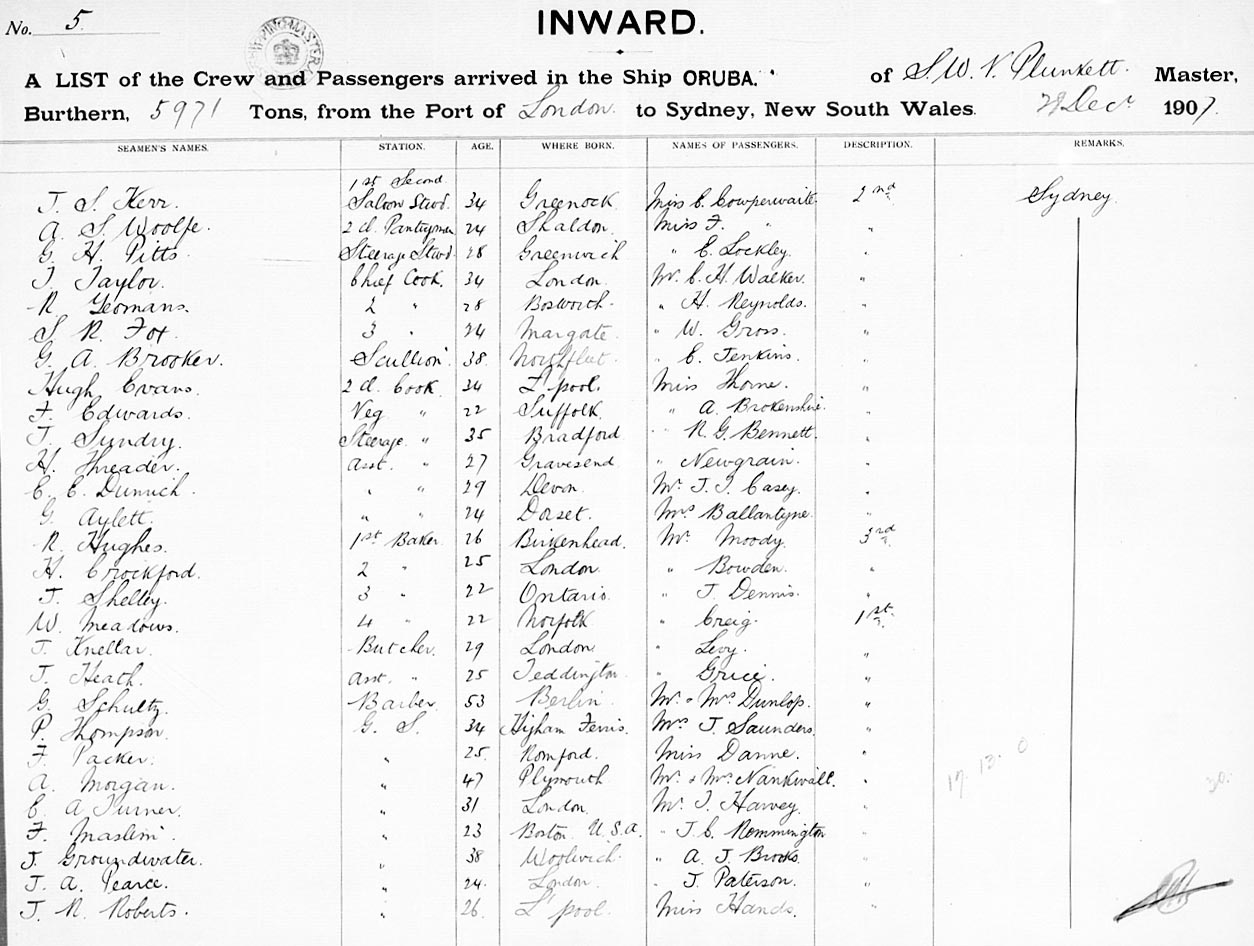 No. 5
INWARD.
A LIST of the Crew and Passengers arrived in the Ship ORUBA. of S. W. V. Plunkett. Master,
Burthern, 5971 Tons, from the Port of London. to Sydney, New South Wales. 28 Decr 1907.
SEAMEN'S NAMES. STATION. AGE. WHERE BORN. NAMES OF PASSENGERS. DESCRIPTION. REMARKS.
1st Second
J. S. Kerr. Saloon Stwd. 34 Greenock Miss C. Cowperwaite. 2nd Sydney.
A. S. Woolfe. 2d. Pantryman 24 Shaldon. Miss F. " "
G. H. Pitts. Steerage Stwd 28 Greenwich " E. Lockley. "
T. Taylor. Chief Cook. 34 London. Mr. C. H. Walker. "
R. Yeomans. 2 " 28 Bosworth. " H. Reynolds. "
S. R. Fox. 3 " 24 Margate. " W. Gross. "
G. A. Brooker. Scullion 38 Northfleet " E. Jenkins. "
Hugh Evans. 2 d. Cook 34 L'pool. Miss Thorne. "
F. Edwards. Veg. " 22 Suffolk. " A. Brokenshire. "
T. Sundry. Steerage " 35 Bradford " R. G. Bennett. "
H. Threader. Asst. " 27 Gravesend " Newgrain. "
C. E. Dunnich. " " 29 Devon. Mr. J. J. Casey. "
G. Aylett. " " 24 Dorset. Mrs Ballantyne. "
R. Hughes. 1st Baker 26 Birkenhead. Mr. Moody. 3rd
H. Crockford. 2 " 25 London " Bowden. "
J. Shelley. 3 " 22 Ontario. " J. Dennis. "
W. Meadows. 4 " 22 Norfolk " Creig. 1st.
J. Knellar. Butcher. 29 London. " Levy. "
J. Heath. Asst. " 25 Teddington. " Grice. "
G. Schultz. Barber. 53 Berlin Mr. & Mrs Dunlop. "
P. Thompson. G. S. 34 Higham Ferris. Mrs J. Saunders. "
F. Packer. " 25. Romford. Miss Danne. "
A. Morgan. " 47 Plymouth Mr. & Mrs Nankivall. "
C. A Turner. " 31 London. Mr. J. Harvey. "
F. Maslin. " 23 Boston. U.S.A. " J. C. Remmington "
J. Groundwater. " 38 Woolwich. " A. J. Brooks. "
J. A. Pearce. " 24. London. " J. Paterson. "
J. R. Roberts. " 26. L'pool. Miss Hands. "
17. 13. 0
30.